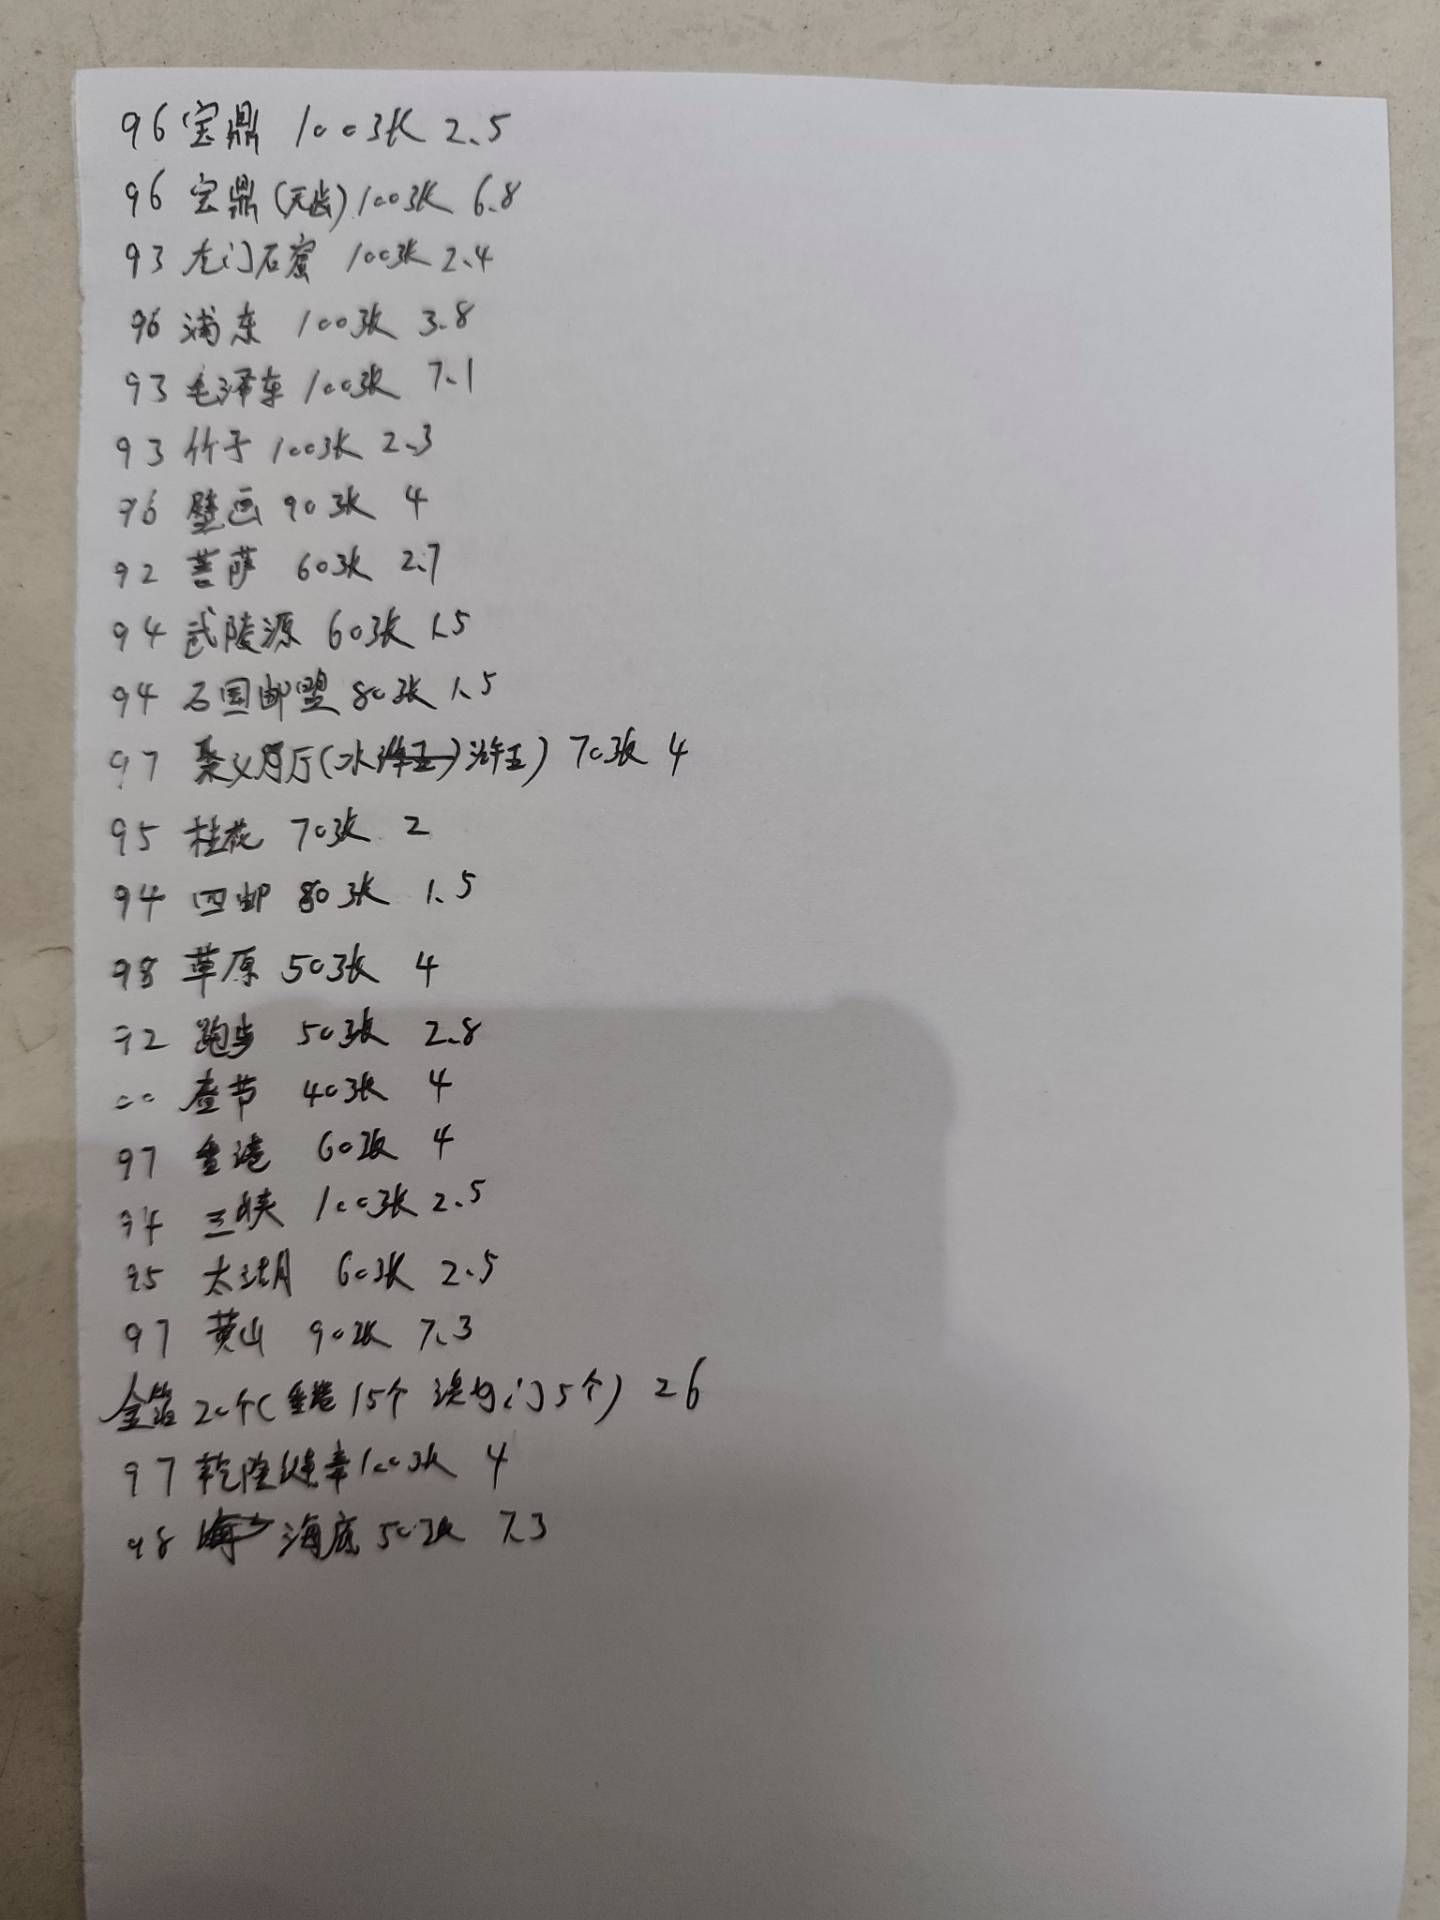 96 宝鼎 100张 2.5
96 宝鼎(无齿)100张 6.8
93 龙门石窟 100张 2.4
96 浦东 100张 3.8
93 毛泽东 100张 7.1
93 竹子 100张 2.3
96 壁画 90张 4
92 菩萨 60张 2.7
94 武陵源 60张 1.5
94 万国邮盟 80张 1.5
97 聚义厅(水浒五) 70张 4
95 桂花 70张 2
94 四邮 80张 1.5
98 草原 50张 4
92 跑步 50张 2.8
00 春节 40张 4
97 香港 60张 4
94 三峡 100张 2.5
95 太湖 60张 2.5
97 黄山 90张 7.3
金箔 20个(香港 15个 澳门5个) 26
97 乾隆 100张 4
98 海底 50张 7.3